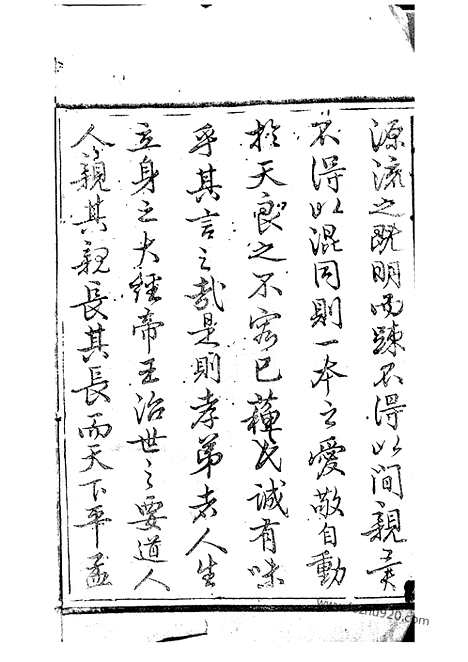 源流之既明而疎不得以間親異
不得以混同則一本之愛敬自動
於天良之不容已蘓氏誠有味
乎其言之哉是則孝弟者人生
立身之大經帝王治世之要道人
人親其親長其長而天下平孟